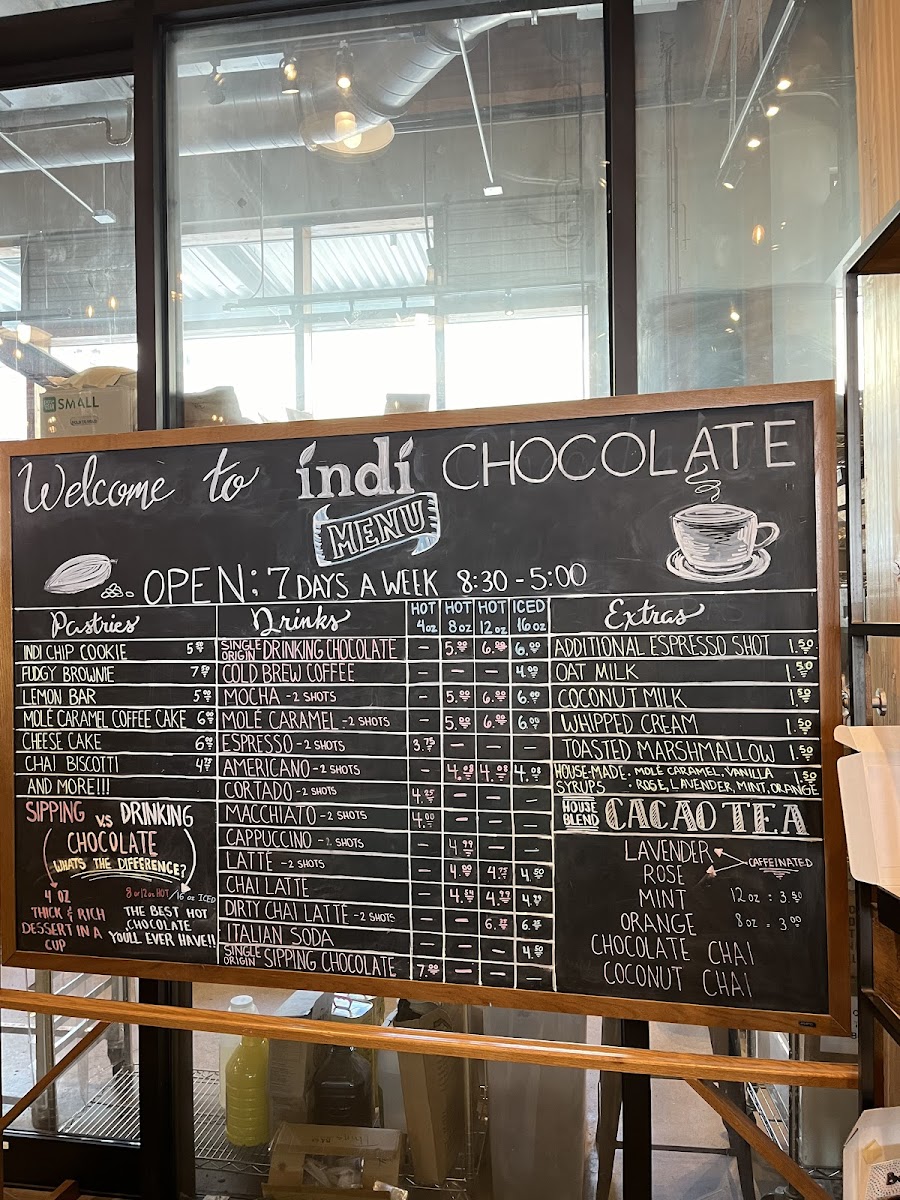 SMALL
Welcome to indi CHOCOLATE
MENU
OPEN: 7 DAYS A WEEK 8:30 - 5:00
Pastries
INDI CHIP COOKIE
FUDGY BROWNIE
LEMON BAR
MOLÉ CARAMEL COFFEE CAKE
CHEESE CAKE
CHAI BISCOTTI
AND MORE!!!
SIPPING V.S DRINKING
CHOCOLATE
WHAT'S THE DIFFERENCE?
4 OZ
THICK & RICH
DESSERT IN A
CUP
8 or 12 oz HOT / 16 oz ICED
THE BEST HOT
CHOCOLATE
YOU'LL EVER HAVE!!
Drinks HOT 4oz HOT 8oz HOT 12oz ICED 16oz
SINGLE ORIGIN DRINKING CHOCOLATE -
COLD BREW COFFEE - - -
MOCHA - 2 SHOTS -
MOLÉ CARAMEL - 2 SHOTS -
ESPRESSO - 2 SHOTS 3.75 - - -
AMERICANO - 2 SHOTS -
CORTADO - 2 SHOTS 4.25 - - -
MACCHIATO - 2 SHOTS 4.00 - - -
CAPPUCCINO - 2 SHOTS - 4.99 - -
LATTE - 2 SHOTS -
CHAI LATTE -
DIRTY CHAI LATTE - 2 SHOTS - -
ITALIAN SODA - - - 4.50
SINGLE ORIGIN SIPPING CHOCOLATE - - -
Extras
ADDITIONAL ESPRESSO SHOT 1.50
OAT MILK 1.50
COCONUT MILK 1.50
WHIPPED CREAM 1.50
TOASTED MARSHMALLOW 1.50
HOUSE-MADE SYRUPS · MOLÉ CARAMEL, VANILLA 1.50
· ROSE, LAVENDER, MINT, ORANGE
HOUSE BLEND CACAO TEA
LAVENDER
CAFFEINATED
ROSE
MINT 12 oz = 3.50
ORANGE 8 oz = 3.00
CHOCOLATE CHAI
COCONUT CHAI